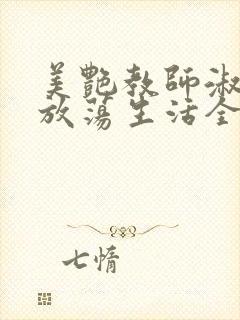 美艷教師淑
放蕩生活全
七惰